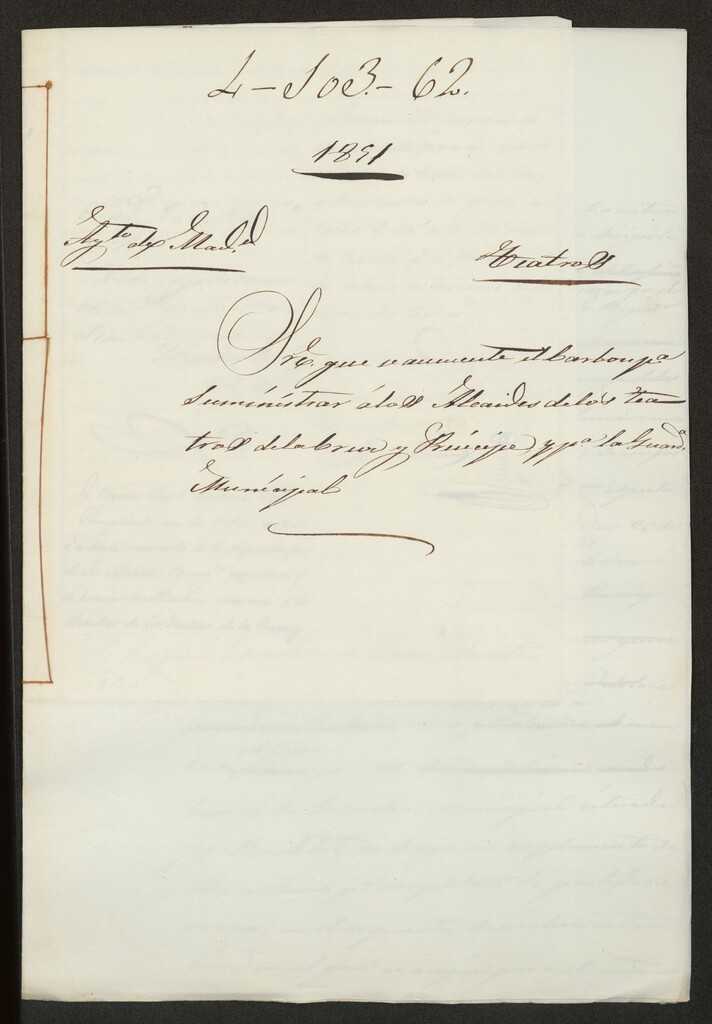 4-103-62.
1851
Ayto. de Madd.
Teatros
Sre. que se aumente el Carbon pa.
suministrar á los Alcaides de los tea-
tros de la Cruz y Príncipe, y pa. la Guarda.
Municipal